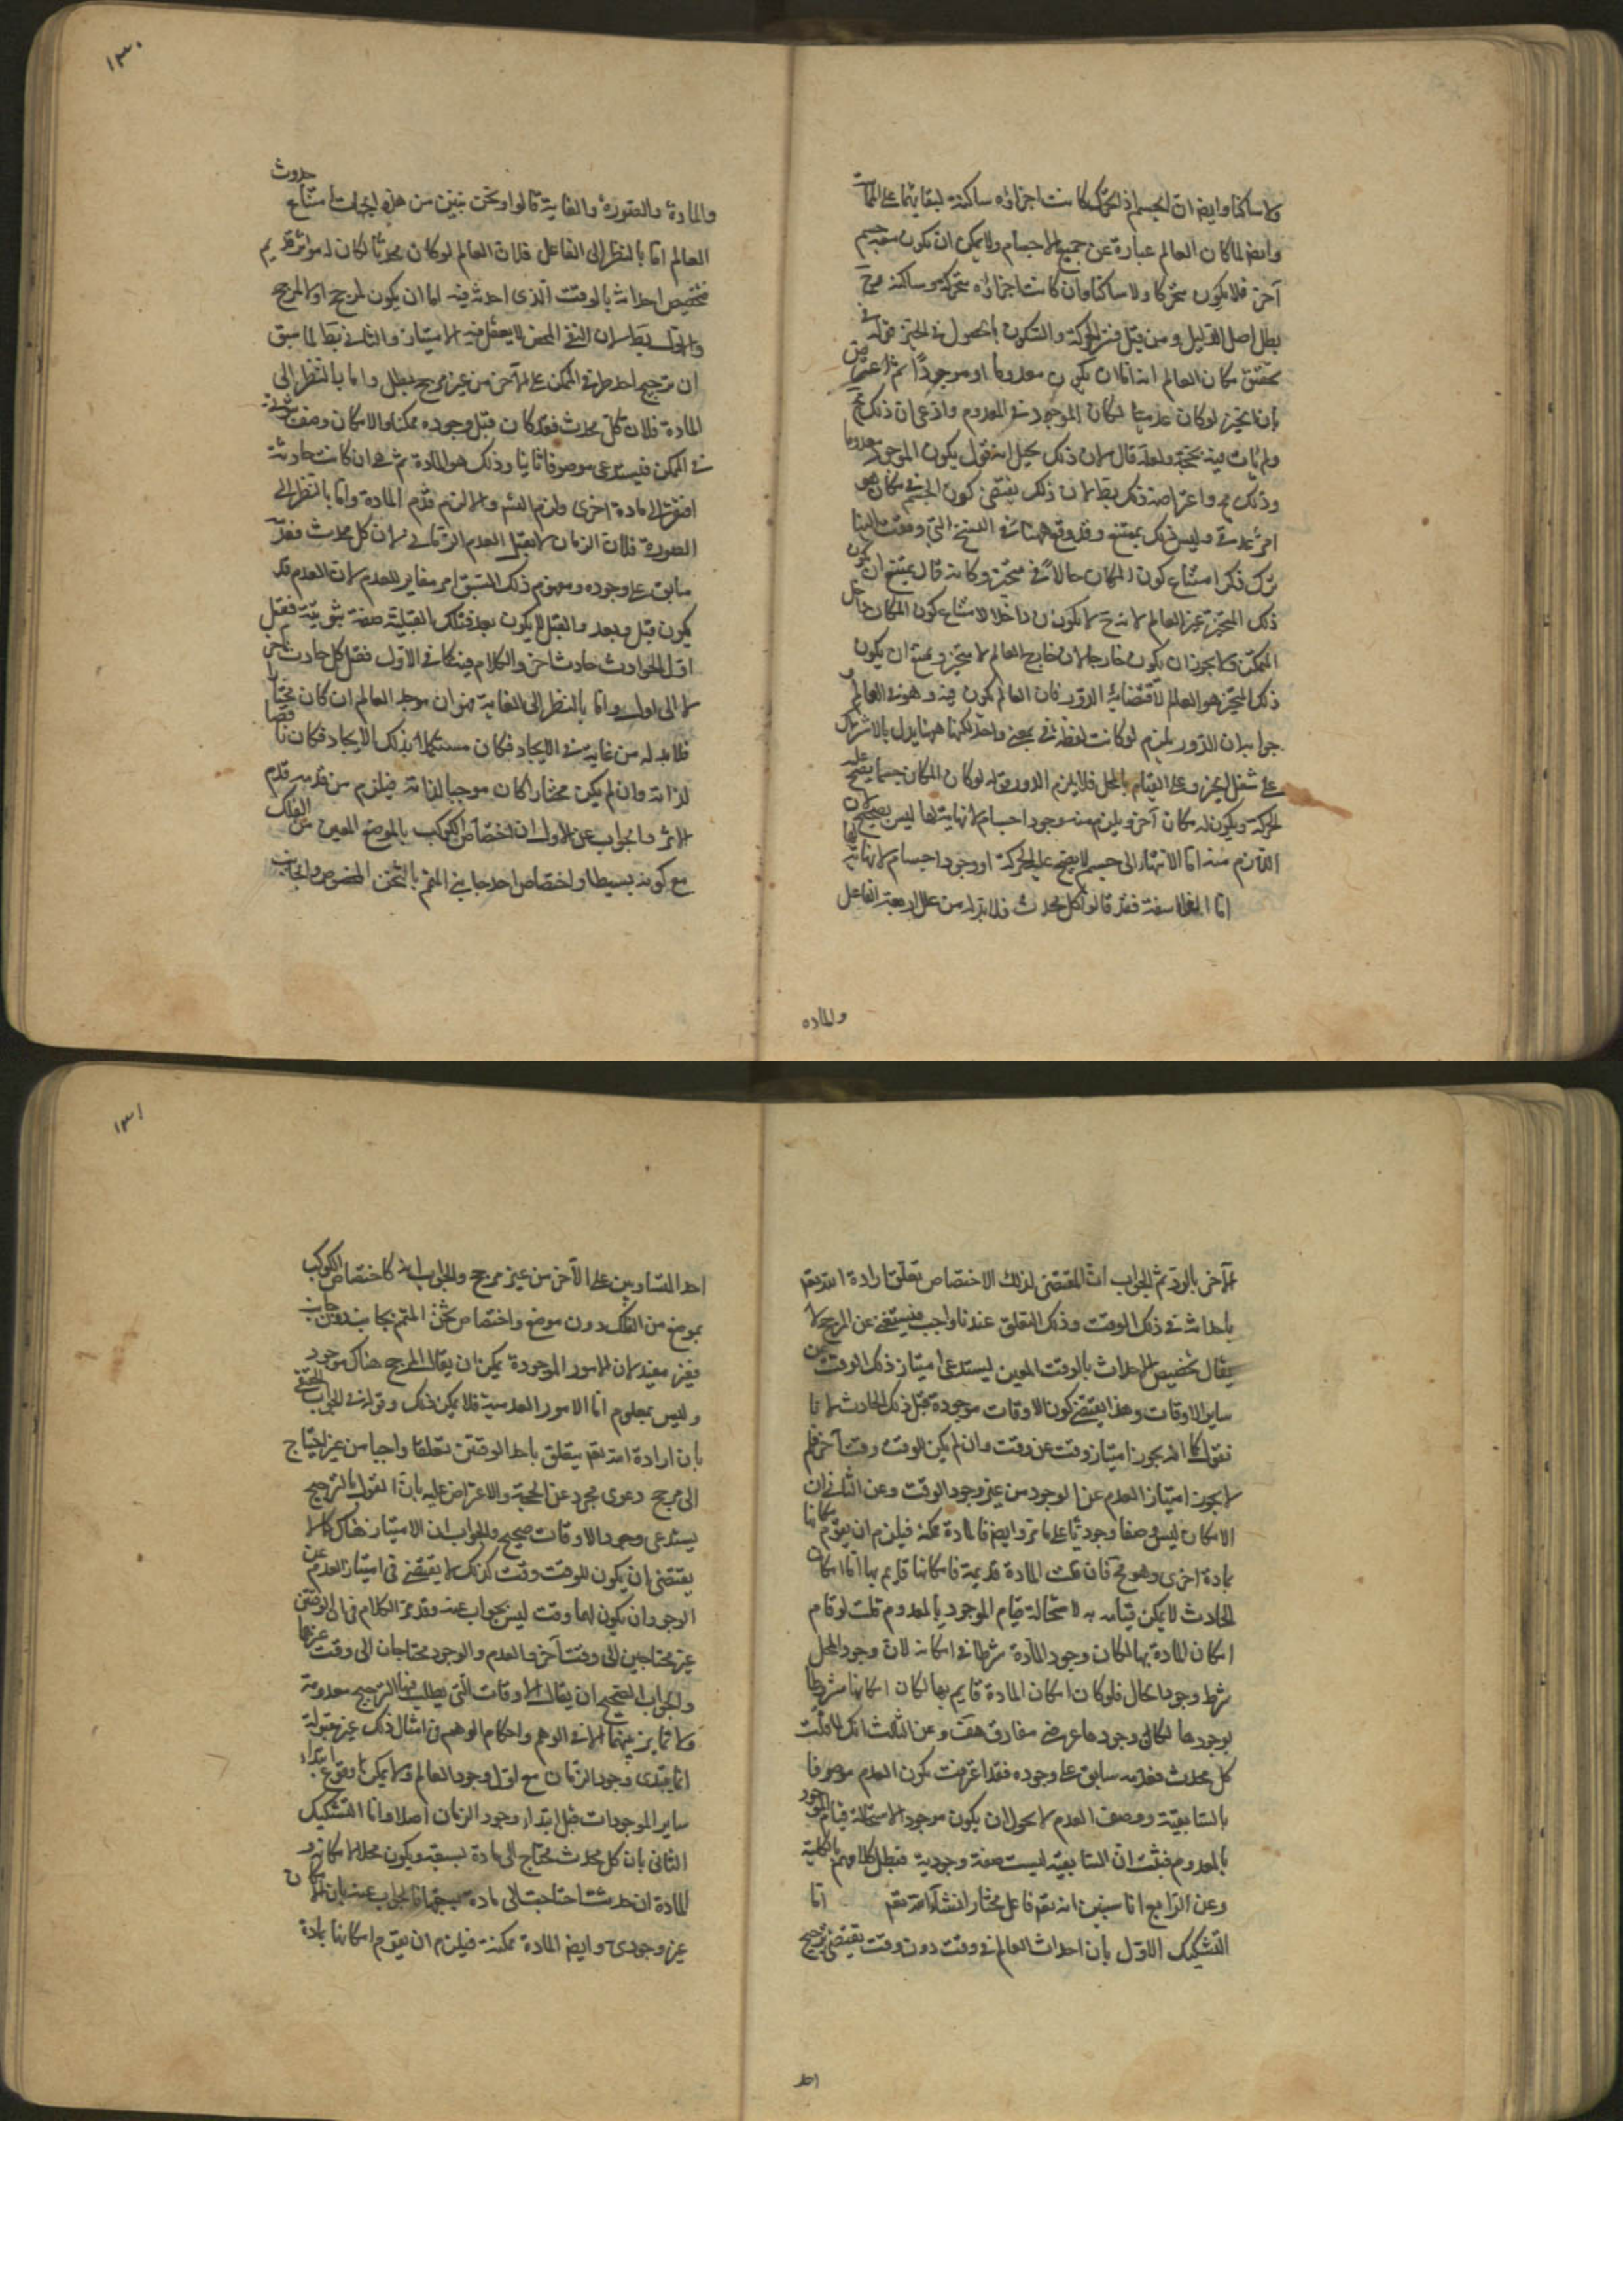 ولا ساكنا وايض ان الجسم اذا تحرك كانت اجزاؤه ساكنة لبقائها على المماسة
وايض لما كان العالم عبارة عن جميع الاجسام ولا يمكن ان يكون معه جسم
آخر فلا يكون متحركا ولا ساكنا وان كانت اجزاؤه متحركة او ساكنة فح
بطل اصل الدليل ومن قبل فسر الحركة والسكون بالحصول في الحيز قوله في
تحقق مكان العالم انه اما ان يكون معدوما او موجودا ثم اعترض
بان الحيز لو كان عدميا لكان الموجود في المعدوم وادعى ان ذلك مح
ولم يات فيه بحجة ولعله قال لان ذلك يخيل انه قول يكون الموجود معدوما
وذلك مح واعتراضه ذلك بط لان ذلك يقتضي كون الجسم في مكان هو
امر عدمي وليس ذلك بممتنع وقد وقع ههنا في النسخ التي وقعت الينا
ترك ذكر امتناع كون المكان حالا في متحيز وكانه قال يمتنع ان يكون
ذلك المتحيز غير العالم لانه ح لا يكون داخلا لامتناع كون المكان داخل
المتمكن ولا يجوز ان يكون خارجا لان خارج العالم لا متحيز ويمتنع ان يكون
ذلك المتحيز هو العالم لاقتضائه الدور فان العالم يكون فيه وهو في العالم
جوابه ان الدور يلزم لو كانت لفظة في بمعنى واحد لكنها ههنا يدل بالاشتراك
على شغل الحيز وعلى القيام بالمحل فلا يلزم الدور قوله لو كان المكان جسما يصح عليه
الحركة ويكون له مكان آخر ويلزم منه وجود اجسام لا نهاية لها ليس بصحيح لان
اللازم منه اما الانتهاء الى جسم لا يصح عليه الحركة او وجود اجسام لا نهاية لها
اما الفلاسفة فقد قالوا كل محدث فلا بد له من علل اربعة الفاعل
والماده
١٣٠
والمادة والصورة والغاية قالوا ونحن نبين من هذه الجهات امتناع حدوث
العالم اما بالنظر الى الفاعل فلان العالم لو كان محدثا لكان له مؤثر قديم
فتخصيص احداثه بالوقت الذي احدثه فيه اما ان يكون لمرجح او لا لمرجح
والاول بط لان النفي المحض لا يعقل فيه الامتياز والثاني بط لما سبق
ان ترجيح احد طرفي الممكن على الآخر من غير مرجح بطل واما بالنظر الى
المادة فلان كل محدث فقد كان قبل وجوده ممكنا والامكان وصف ثبوتي
في الممكن فيستدعى موصوفا ثابتا وذلك هو المادة ثم هي ان كانت حادثة
افتقرت الى مادة اخرى ولزم التسلسل والا لزم قدم المادة واما بالنظر الى
الصورة فلان الزمان لا يقبل العدم الزماني لان كل محدث فعدمه
سابق على وجوده ومفهوم ذلك السبق امر مغاير للعدم لان العدم قد
يكون قبل وبعد والقبل لا يكون بعد فتلك القبلية صفة ثبوتية فقبل
اول الحوادث حادث اخر والكلام فيه كما في الاول فقبل كل حادث آخر
لا الى اول واما بالنظر الى الغاية فهو ان موجد العالم ان كان مختارا
فلا بد له من غاية في الايجاد فكان مستكملا بذلك الايجاد فكان ناقصا
لذاته وان لم يكن مختارا كان موجبا لذاته فيلزم من قدمه قدم
الاثر والجواب عن الاول ان اختصاص الكوكب بالموضع المعين من الفلك
مع كونه بسيطا واختصاص احد جانبي المتمم بالثخن المخصوص والجانب
الآخر بالرقة ثم الجواب ان المقتضي لذلك الاختصاص تعلق ارادة الله تعم
باحداثه في ذلك الوقت وذلك التعلق عندنا واجب فيستغني عن المرجح لا
يقال تخصيص الاحداث بالوقت المعين يستدعى امتياز ذلك الوقت عن
ساير الاوقات وهذا يقتضي كون الاوقات موجودة قبل ذلك الحادث لانا
نقول كما انه يجوز امتياز وقت عن وقت وان لم يكن للوقت وقت آخر فلم
لا يجوز امتياز العدم عن الوجود من غير وجود الوقت وعن الثاني ان
الامكان ليس وصفا وجوديا على ما مر وايض فالمادة ممكنة فيلزم ان يقوم امكانها
بمادة اخرى وهو مح فان قلت المادة قديمة فامكانها قايم بها اما امكان
الحادث لا يمكن قيامه به لاستحالة قيام الموجود بالمعدوم قلت لو قام
امكان المادة بها لكان وجود المادة شرطا في امكانه لان وجود المحل
شرط وجود الحال فلو كان امكان المادة قايم بها لكان امكانها مشروطا
بوجودها لكان وجودها عرضى مفارق هف وعن الثالث انك لما قلت
كل محدث فعدمه سابق على وجوده فقد اعترفت بكون العدم موصوفا
بالسابقية ووصف العدم لا يجوز ان يكون موجودا لاستحالة قيام الموجود
بالمعدوم فثبت ان السابقية ليست صفة وجودية فبطل كلامهم بالكلية
وعن الرابع انا سنبين انه تعم فاعل مختار انشاء الله تعم اما
التشكيك الاول بان احداث العالم في وقت دون وقت يقتضي ترجيح
احد
١٣١
احد المتساويين على الآخر من غير مرجح والجواب انه كاختصاص الكوكب
بموضع من الفلك دون موضع واختصاص ثخن المتمم بجانب دون جانب
فغير مفيد لان الامور الموجودة يمكن ان يقال المرجح هناك موجود
وليس بمعلوم اما الامور العدمية فلا يمكن ذلك وقوله في الجواب الحقيقي
بان ارادة الله تعم يتعلق باحد الوقتين تعلقا واجبا من غير احتياج
الى مرجح دعوى مجرد عن الحجة والاعتراض عليه بان القول بالترجيح
يستدعى وجود الاوقات صحيح والجواب ان الامتياز هناك كما لا
يقتضي ان يكون للوقت وقت كذلك لا يقتضي في امتياز العدم عن
الوجود ان يكون لهما وقت ليس بجواب عنه وقد مر الكلام في ان الوقتين
غير محتاجين الى وقت آخر والعدم والوجود محتاجان الى وقت غيرهما
والجواب الصحيح ان يقال الاوقات التي يطلب فيها الترجيح معدومة
ولا تمايز بينها الا في الوهم واحكام الوهم في امثال ذلك غير مقبولة
انما يبتدى وجود الزمان مع اول وجود العالم ولا يمكن وقوع ابتداء
ساير الموجودات قبل ابتداء وجود الزمان اصلا واما التشكيك
الثاني بان كل محدث محتاج الى مادة يسبقه ويكون محلا لامكانه و
المادة ان حدثت احتاجت الى مادة يسبقها فالجواب عنه بان الامكان
غير وجودى وايض المادة ممكنة فيلزم ان يقوم امكانها بمادة